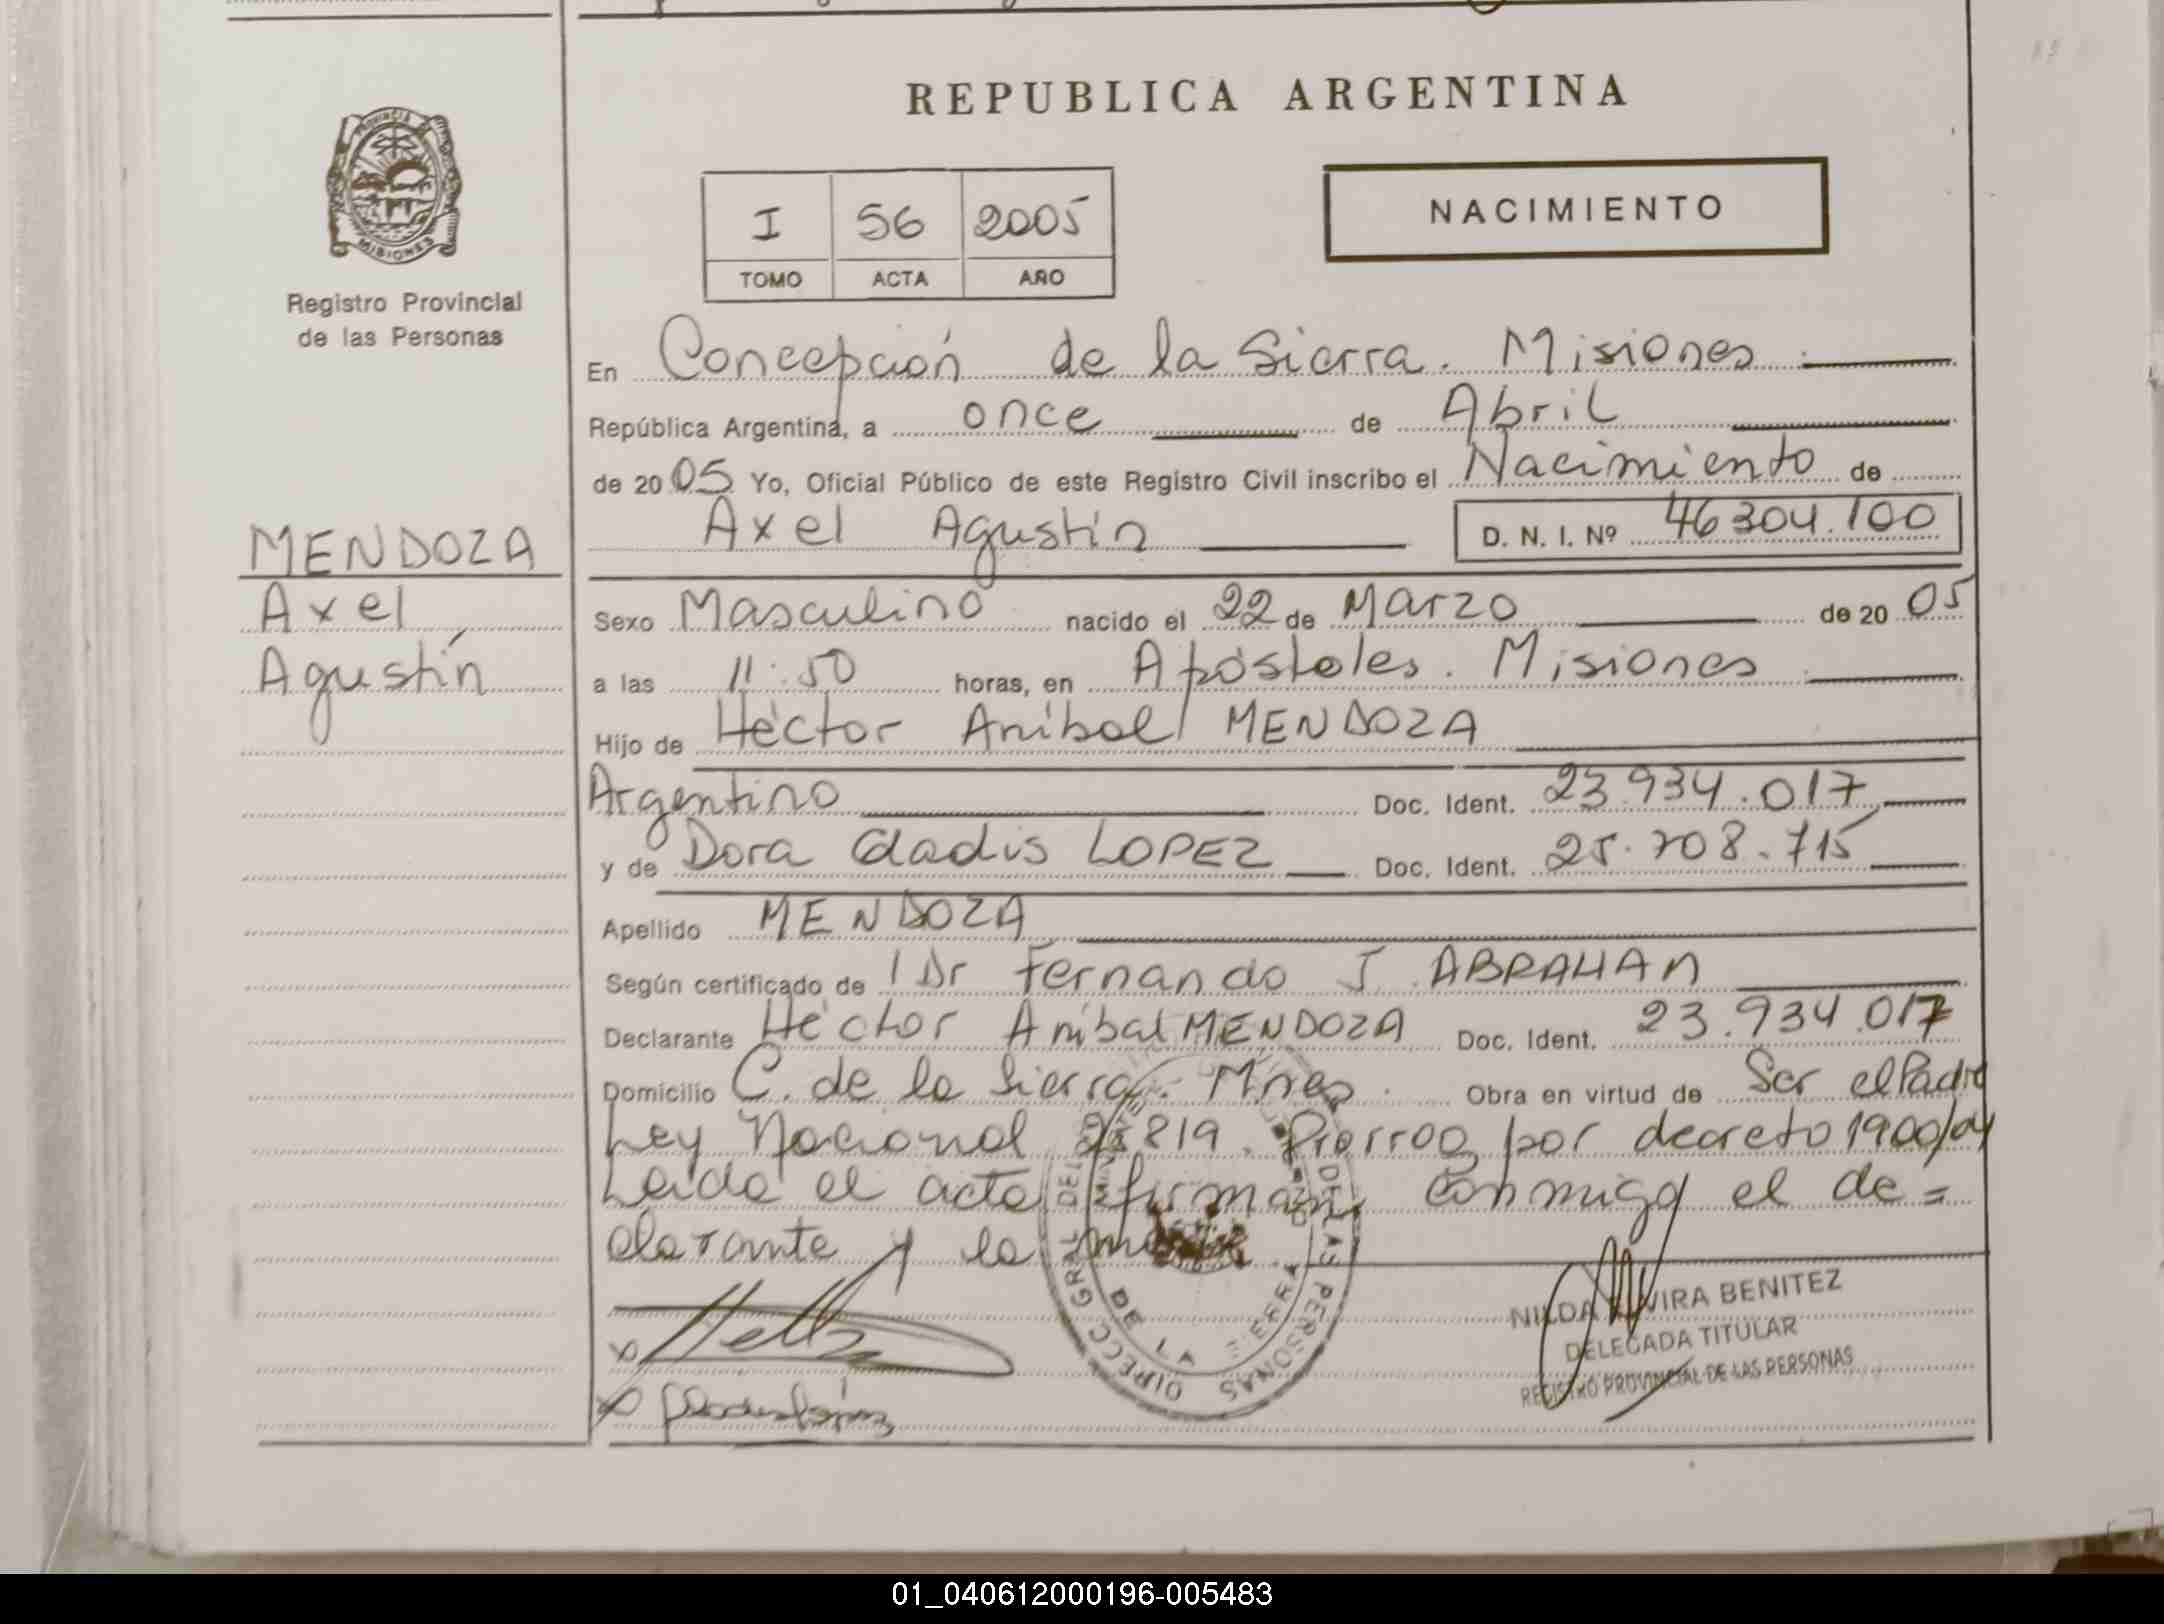 REPUBLICA ARGENTINA
PROVINCIA DE
MISIONES
Registro Provincial
de las Personas
I 56 2005
TOMO ACTA AÑO
NACIMIENTO
En Concepción de la Sierra. Misiones.
República Argentina, a once de Abril
de 2005 Yo, Oficial Público de este Registro Civil inscribo el Nacimiento de
Axel Agustín D. N. I. Nº 46304.100
MENDOZA
Axel
Agustín
Sexo Masculino nacido el 22 de Marzo de 20 05
a las 11:50 horas, en Apóstoles. Misiones.
Hijo de Héctor Aníbal MENDOZA
Argentino Doc. Ident. 23.934.017
y de Dora Gladis LOPEZ Doc. Ident. 25.708.715
Apellido MENDOZA
Según certificado de l Dr Fernando J. ABRAHAN
Declarante Héctor Aníbal MENDOZA Doc. Ident. 23.934.017
Domicilio C. de la Sierra. Mnes. Obra en virtud de Ser el Padre
Ley Nacional 819. Prorrog por decreto 1900/04
Leída el acta firman conmigo el de=
clarante y la
DIRECC GRAL DEL DE LAS PERSONAS
DE LA SIERRA
NILDA ELVIRA BENITEZ
DELEGADA TITULAR
REGISTRO PROVINCIAL DE LAS PERSONAS
01_040612000196-005483